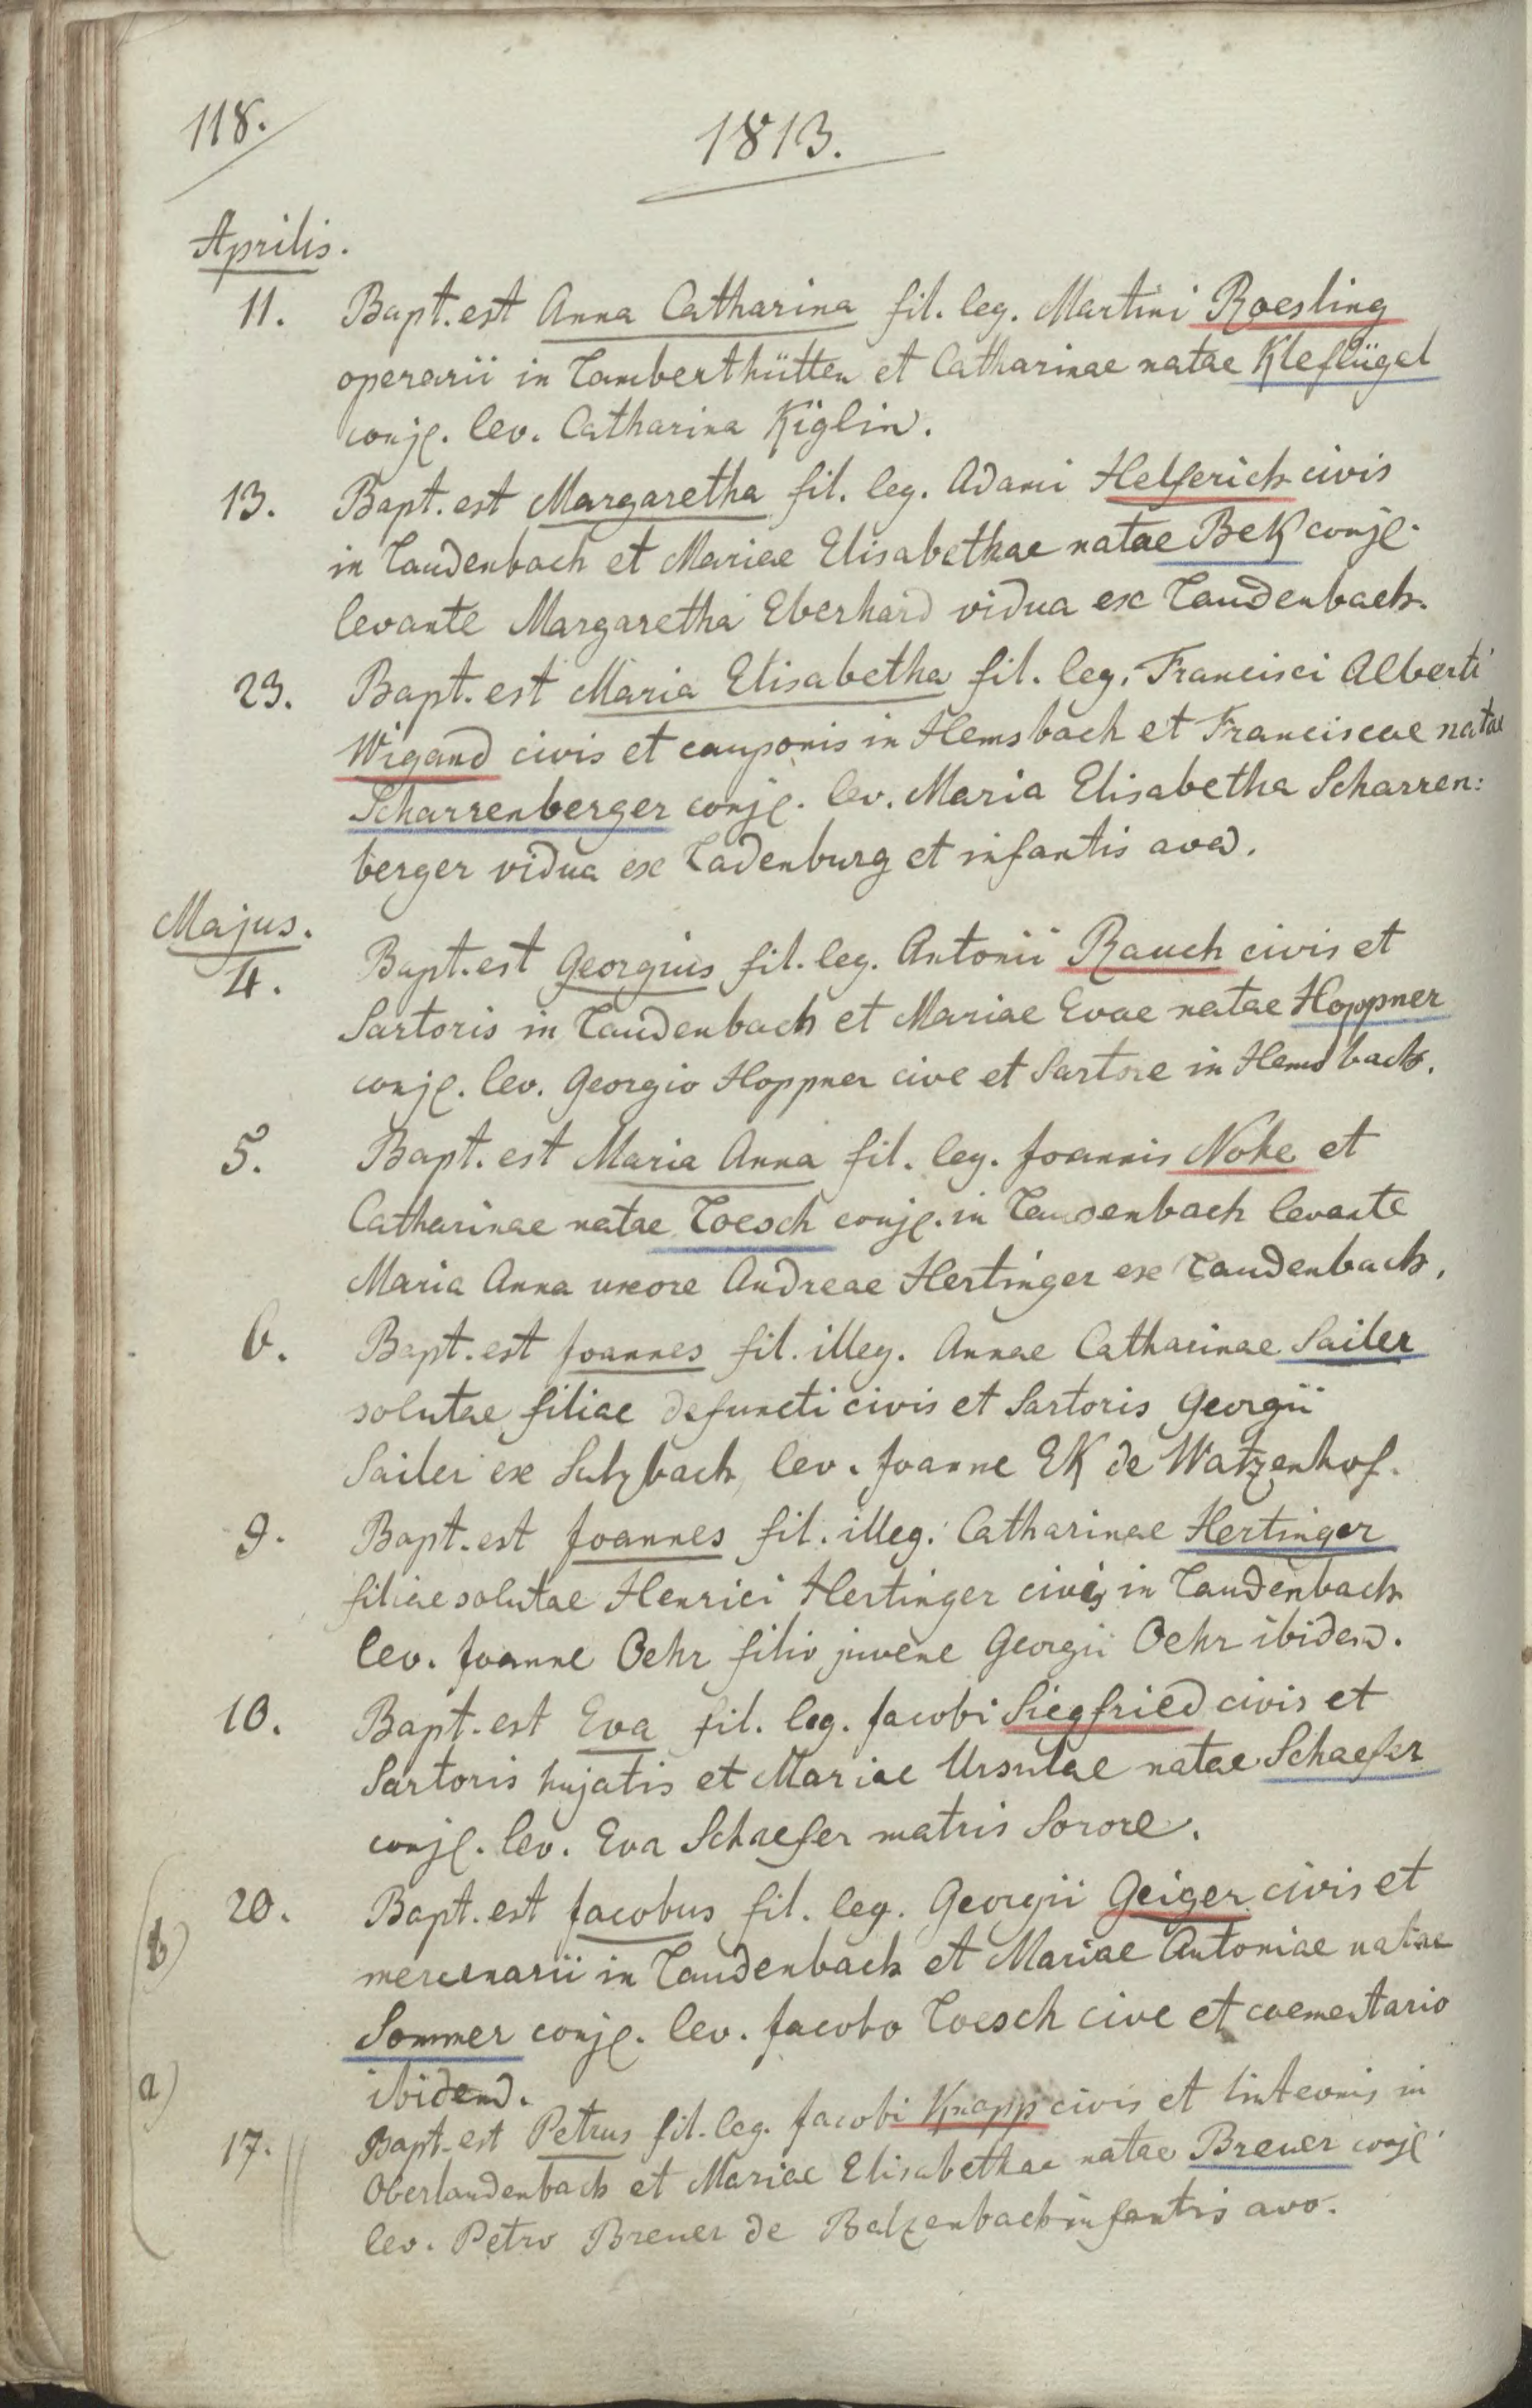 118.
1813.
Aprilis.
11. Bapt. est Anna Catharina fil. leg. Martini Roesling
operarii in Lamberthütten et Catharinae natae Kleflügel
conjg. lev. Catharina Kiglin.
13. Bapt. est Margaretha fil. leg. Adami Helferich civis
in Laudenbach et Mariae Elisabethae natae Bek conjg.
levante Margaretha Eberhard vidua ex Laudenbach.
23. Bapt. est Maria Elisabetha fil. leg. Francisci Alberti
Wigand civis et cauponis in Hemsbach et Franciscae natae
Scharrenberger conjg. lev. Maria Elisabetha Scharren:
berger vidua ex Ladenburg et infantis ava.
Majus.
4. Bapt. est Georgius fil. leg. Antonii Rauch civis et
Sartoris in Laudenbach et Mariae Evae natae Hoppner
conjg. lev. Georgio Hoppner cive et Sartore in Hemsbach.
5. Bapt. est Maria Anna fil. leg. Joannis Nohe et
Catharinae natae Loesch conjg. in Laudenbach levante
Maria Anna uxore Andreae Hertinger ex Laudenbach.
6. Bapt. est Joannes fil. illeg. Annae Catharinae Sailer
solutae filiae defuncti civis et Sartoris Georgii
Sailer ex Sulzbach lev. Joanne Ek de Watzenhof.
9. Bapt. est Joannes fil. illeg. Catharinae Hertinger
filiae solutae Henrici Hertinger civis in Laudenbach
lev. Joanne Oehr filio juvene Georgii Oehr ibidem.
10. Bapt. est Eva fil. leg. Jacobi Siegfried civis et
Sartoris hujatis et Mariae Ursulae natae Schaefer
conjg. lev. Eva Schaefer matris Sorore.
20. Bapt. est Jacobus fil. leg. Georgii Geiger civis et
b) mercenarii in Laudenbach et Mariae Antoniae natae
Sommer conjg. lev. Jacobo Loesch cive et caementario
a) ibidem.
17. Bapt. est Petrus fil. leg. Jacobi Knapp civis et linteonis in
Oberlaudenbach et Mariae Elisabethae natae Breuer conjg.
lev. Petro Breuer de Balzenbach infantis avo.